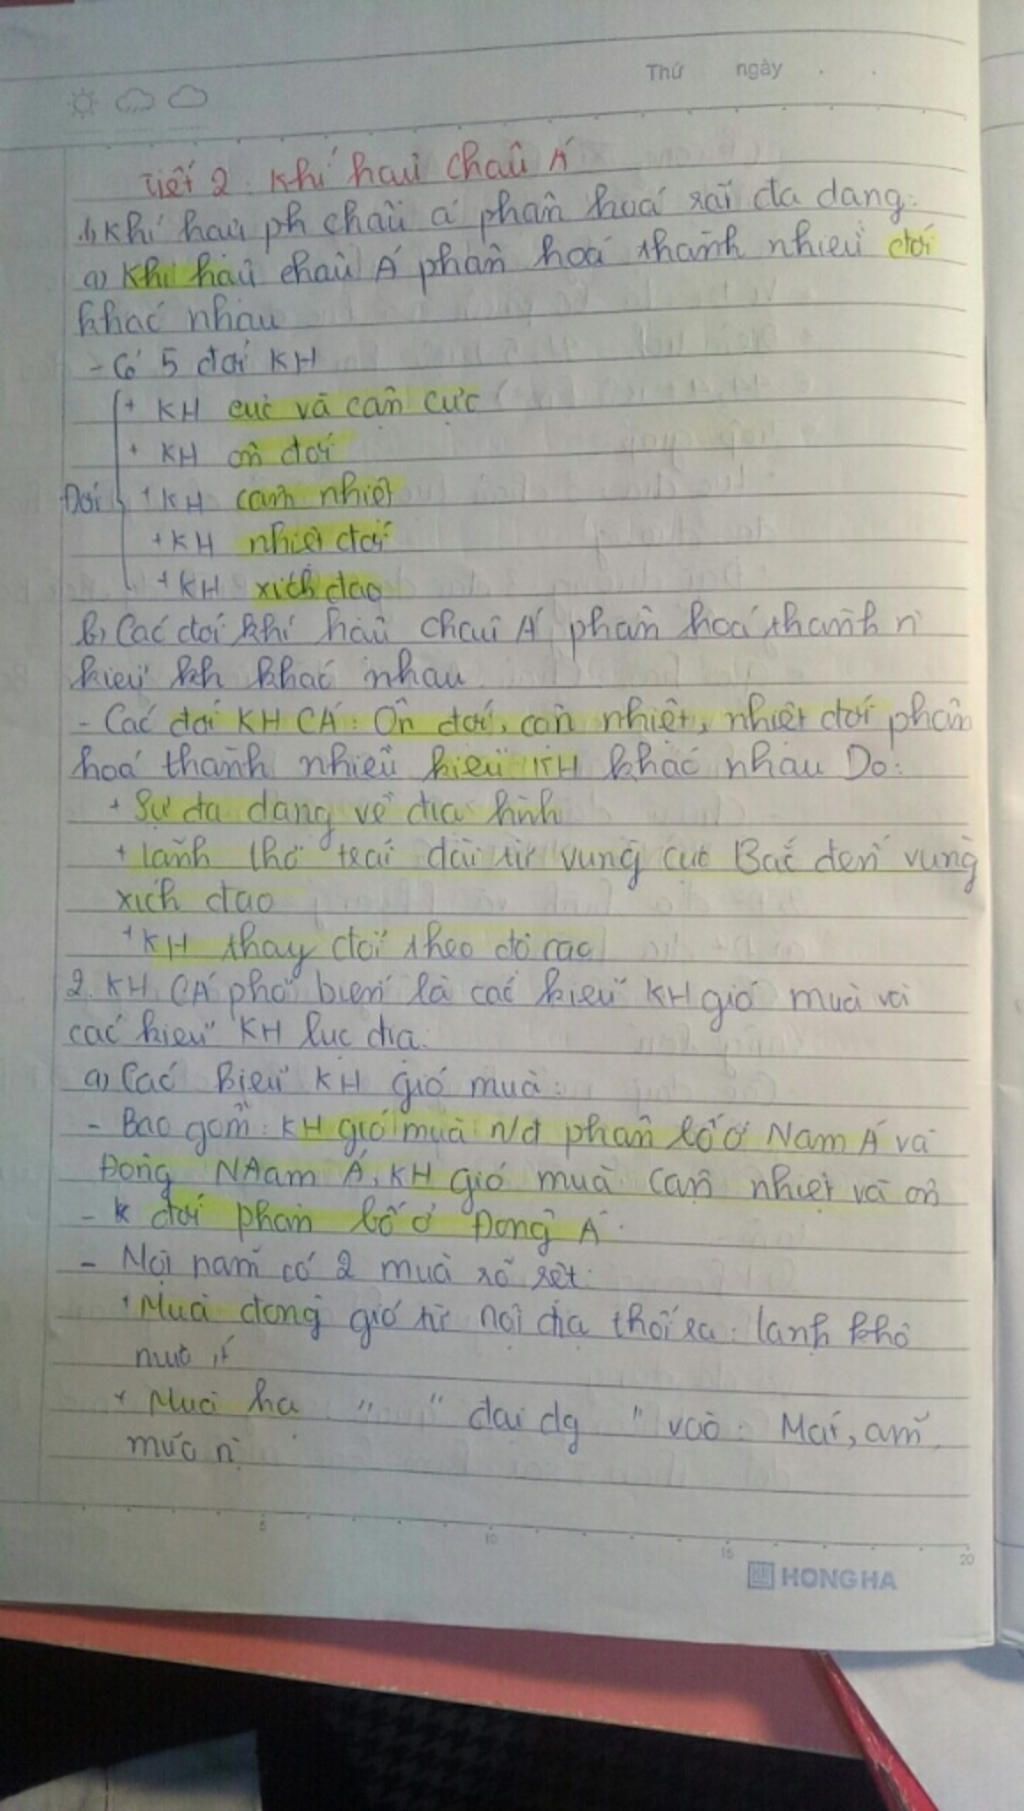 Thứ ngày
Tiết 2. Khí hậu châu Á
1, Khí hậu ph châu á phân hoá rất đa dạng:
a) Khí hậu châu Á phân hoá thành nhiều đới
khác nhau
- Có 5 đới KH
+ KH cực và cận cực
+ KH ôn đới
Đới + KH cận nhiệt
+ KH nhiệt đới
+ KH xích đạo
b) Các đới khí hậu châu Á phân hoá thành n`
kiểu kh khác nhau
- Các đới KH CÁ: Ôn đới, cận nhiệt, nhiệt đới phân
hoá thành nhiều kiểu KH khác nhau Do:
+ Sự đa dạng về địa hình
+ lãnh thổ trải dài từ vùng cực Bắc đến vùng
xích đạo
+ KH thay đổi theo độ cao
2. KH CÁ phổ biến là các kiểu KH gió mùa và
các kiểu KH lục địa.
a) Các kiểu KH gió mùa:
- Bao gồm: KH gió mùa n/đ phân bố ở Nam Á và
Đông NAam Á, KH gió mùa cận nhiệt và ôn
- đới phân bố ở Đông Á.
- Mỗi năm có 2 mùa rõ rệt:
+ Mùa đông gió từ nội địa thổi ra: lạnh khô
mưa ít
+ Mùa hạ " " đại dg " vào: Mát, ẩm,
mưa n`
5 10 15 20
HONG HA